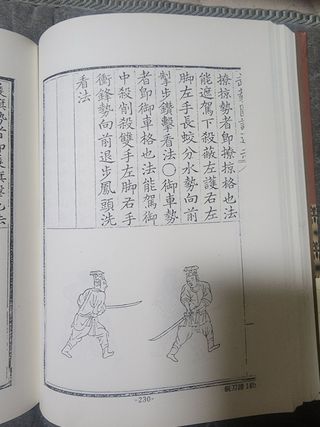 撩掠勢者卽撩掠格也法
能遮駕下殺蔽左護右左
脚左手長蛟分水勢向前
掣步鑽擊看法○御車勢
者卽御車格也法能駕御
中殺削殺雙手左脚右手
衝鋒勢向前退步鳳頭洗
看法
-230-